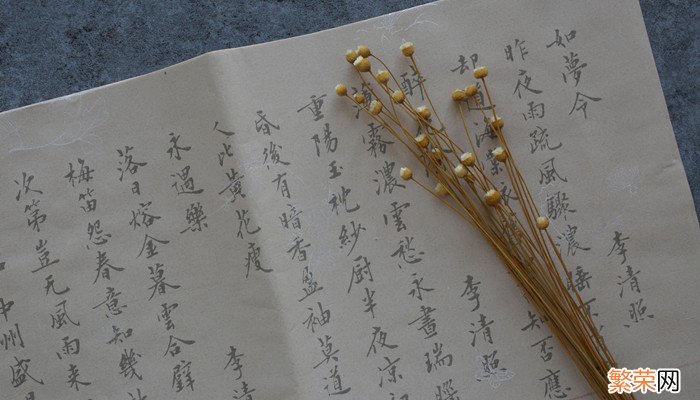 如夢令 李清照
昨夜雨疏風驟濃不
却道海棠依 知否應
醉 李清照
薄霧濃雲愁永晝瑞
重陽玉枕紗厨半夜凉初
昏後有暗香盈袖莫道
人比黃花瘦
永遇樂 李清
落日熔金暮雲合璧
梅笛怨春意知幾
次第豈无風雨来
中州盛
繁荣网